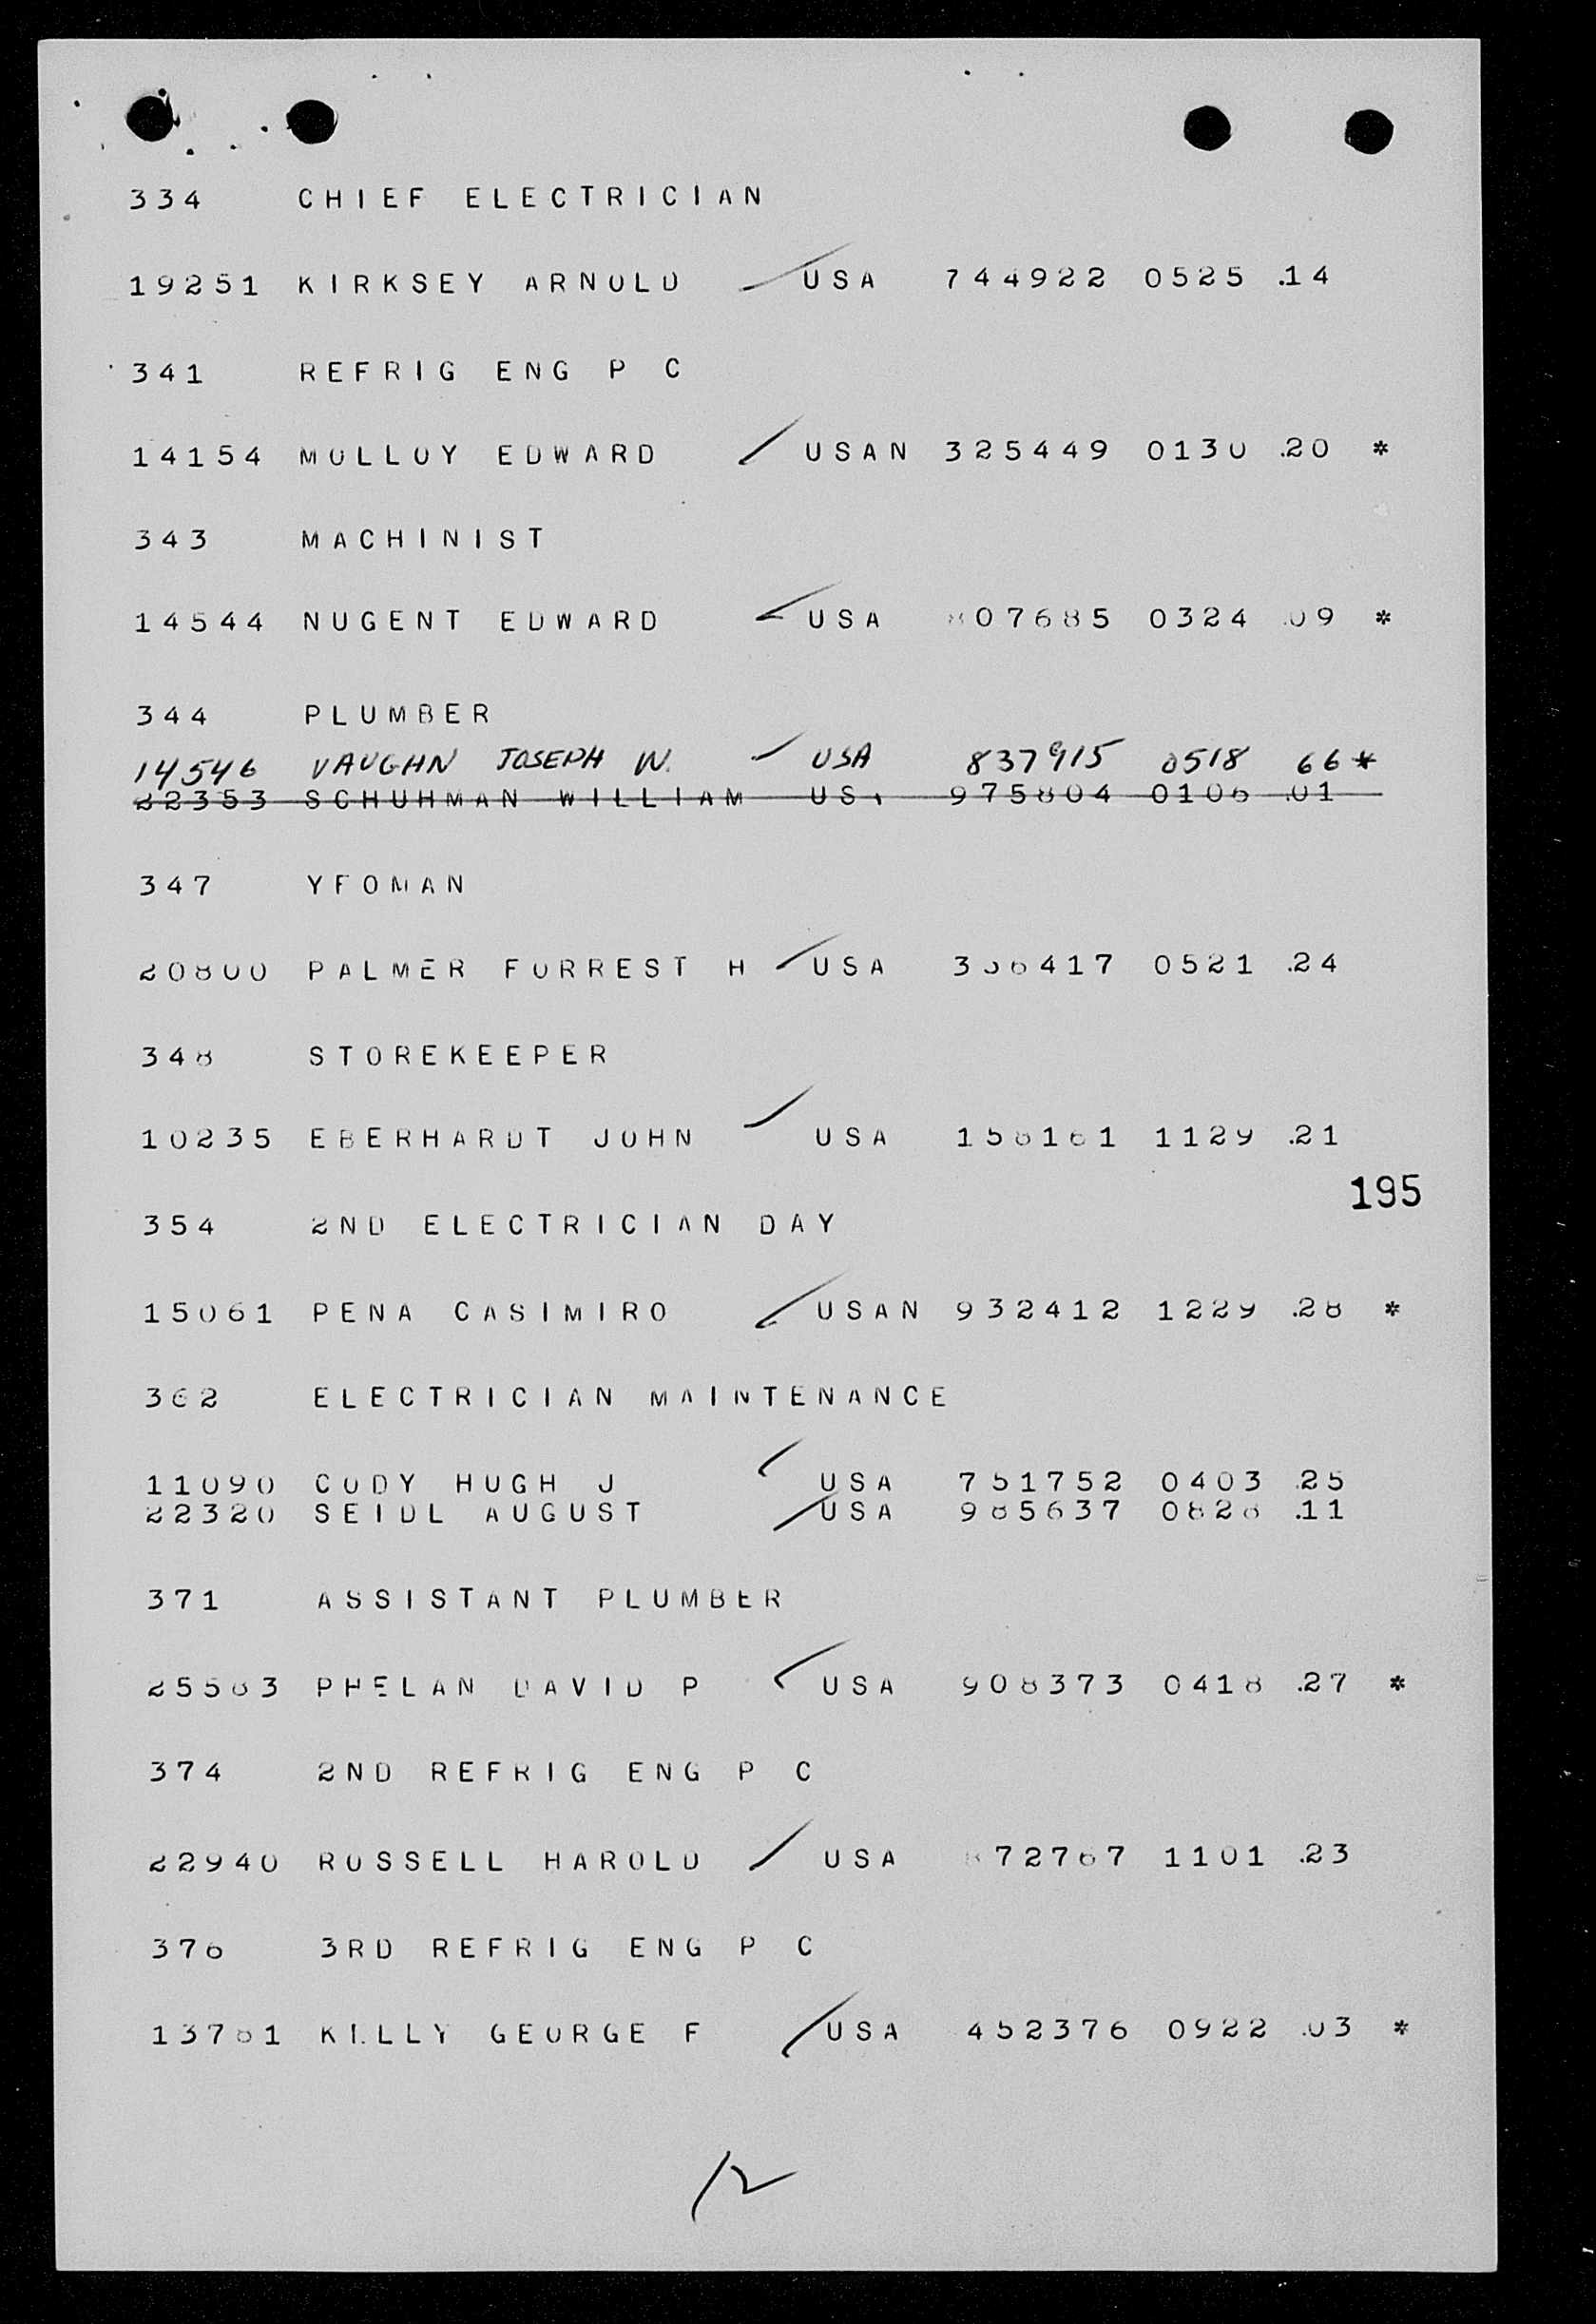 334 CHIEF ELECTRICIAN
19251 KIRKSEY ARNOLD USA 744922 0525 .14
341 REFRIG ENG P C
14154 MOLLOY EDWARD USAN 325449 0130 .20 *
343 MACHINIST
14544 NUGENT EDWARD USA 807685 0324 .09 *
344 PLUMBER
14546 VAUGHN JOSEPH W. USA 837915 0518 66*
22353 SCHUHMAN WILLIAM 975804 0106 .01
347 YEOMAN
20800 PALMER FORREST H USA 0521 .24
348 STOREKEEPER
10235 EBERHARDT JOHN USA 1129 .21
195
354 2ND ELECTRICIAN DAY
15061 PENA CASIMIRO USAN 932412 1229 .28 *
362 ELECTRICIAN MAINTENANCE
11090 CODY HUGH J USA 751752 0403 .25
22320 SEIDL AUGUST USA 985637 0828 .11
371 ASSISTANT PLUMBER
PHELAN DAVID P USA 908373 0418 .27 *
374 2ND REFRIG ENG P C
22940 RUSSELL HAROLD USA 872767 1101 .23
376 3RD REFRIG ENG P C
KELLY GEORGE F USA 452376 0922 .03 *
12